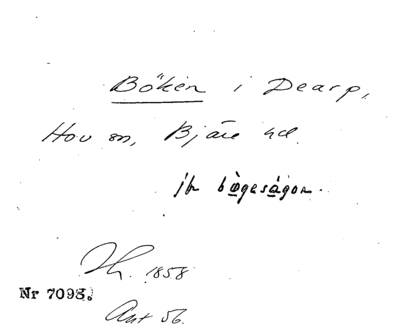 Böken i Dearp,
Hov sn, Bjäre hd.
jfr bögesågon.
1858
Nr 7098.
Ant 56.